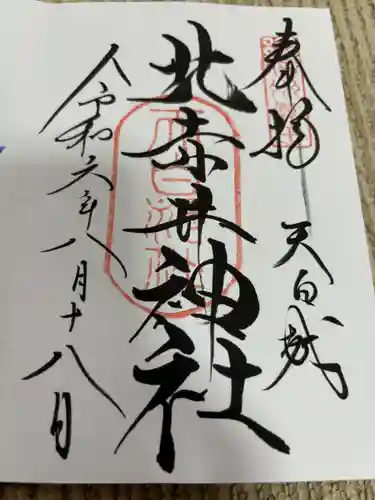 奉拝
天白城
北赤井神社
令和六年八月十八日